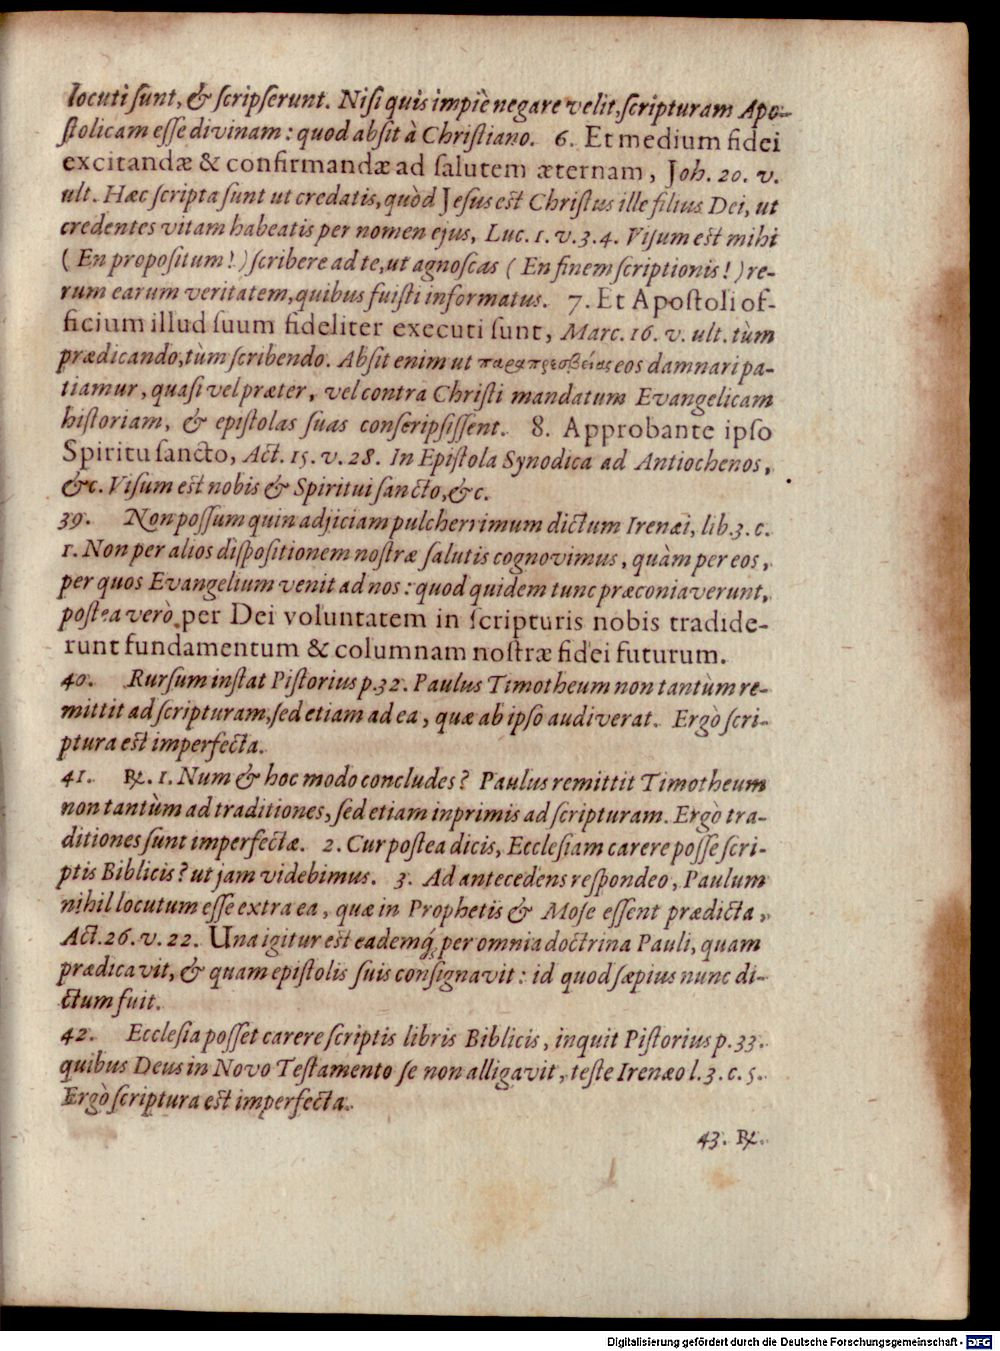 locuti sunt, & scripserunt. Nisi quis impiè negare velit, scripturam Apo-
stolicam esse divinam: quod absit à Christiano. 6. Et medium fidei
excitandæ & confirmandæ ad salutem æternam, Joh. 20. v.
ult. Hæc scripta sunt ut credatis, quòd Jesus est Christus ille filius Dei, ut
credentes vitam habeatis per nomen ejus, Luc. 1. v. 3. 4. Visum est mihi
(En propositum!) scribere ad te, ut agnoscas (En finem scriptionis!) re-
rum earum veritatem, quibus fuisti informatus. 7. Et Apostoli of-
ficium illud suum fideliter executi sunt, Marc. 16. v. ult. tùm
prædicando, tùm scribendo. Absit enim ut παραπρεσβείας eos damnari pa-
tiamur, quasi vel præter, vel contra Christi mandatum Evangelicam
historiam, & epistolas suas conscripsissent. 8. Approbante ipso
Spiritu sancto, Act. 15. v. 28. In Epistola Synodica ad Antiochenos,
&c. Visum est nobis & Spiritui sancto, &c.
39. Non possum quin adjiciam pulcherrimum dictum Irenæi, lib. 3. c.
1. Non per alios dispositionem nostræ salutis cognovimus, quàm per eos,
per quos Evangelium venit ad nos: quod quidem tunc præconiaverunt,
postea verò per Dei voluntatem in scripturis nobis tradide-
runt fundamentum & columnam nostræ fidei futurum.
40. Rursum instat Pistorius p. 32. Paulus Timotheum non tantùm re-
mittit ad scripturam, sed etiam ad ea, quæ ab ipso audiverat. Ergò scri-
ptura est imperfecta.
41. ℞. 1. Num & hoc modo concludes? Paulus remittit Timotheum
non tantùm ad traditiones, sed etiam inprimis ad scripturam. Ergò tra-
ditiones sunt imperfectæ. 2. Cur postea dicis, Ecclesiam carere posse scri-
ptis Biblicis? ut jam videbimus. 3. Ad antecedens respondeo, Paulum
nihil locutum esse extra ea, quæ in Prophetis & Mose essent prædicta,
Act. 26. v. 22. Una igitur est eademq́; per omnia doctrina Pauli, quam
prædicavit, & quam epistolis suis consignavit: id quod sæpius nunc di-
ctum fuit.
42. Ecclesia posset carere scriptis libris Biblicis, inquit Pistorius p. 33.
quibus Deus in Novo Testamento se non alligavit, teste Irenæo l. 3. c. 5.
Ergò scriptura est imperfecta.
43. ℞.
Digitalisierung gefördert durch die Deutsche Forschungsgemeinschaft - DFG